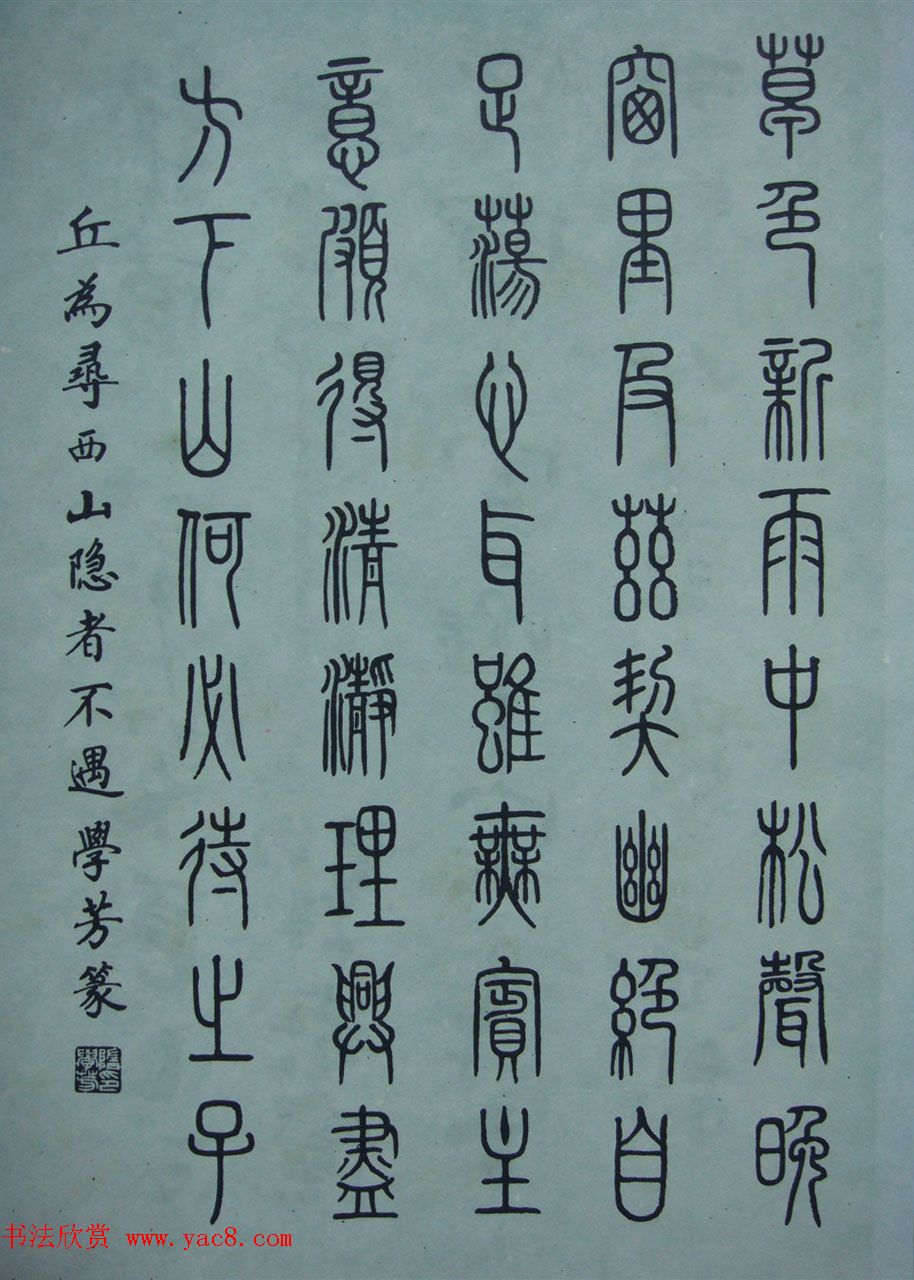 草色新雨中松聲晚
窗里及茲契幽絕自
足蕩心耳雖無賓主
意頗得清瀞理興盡
方下山何必待之子
丘為尋西山隐者不遇學芳篆
书法欣赏 www.yac8.com